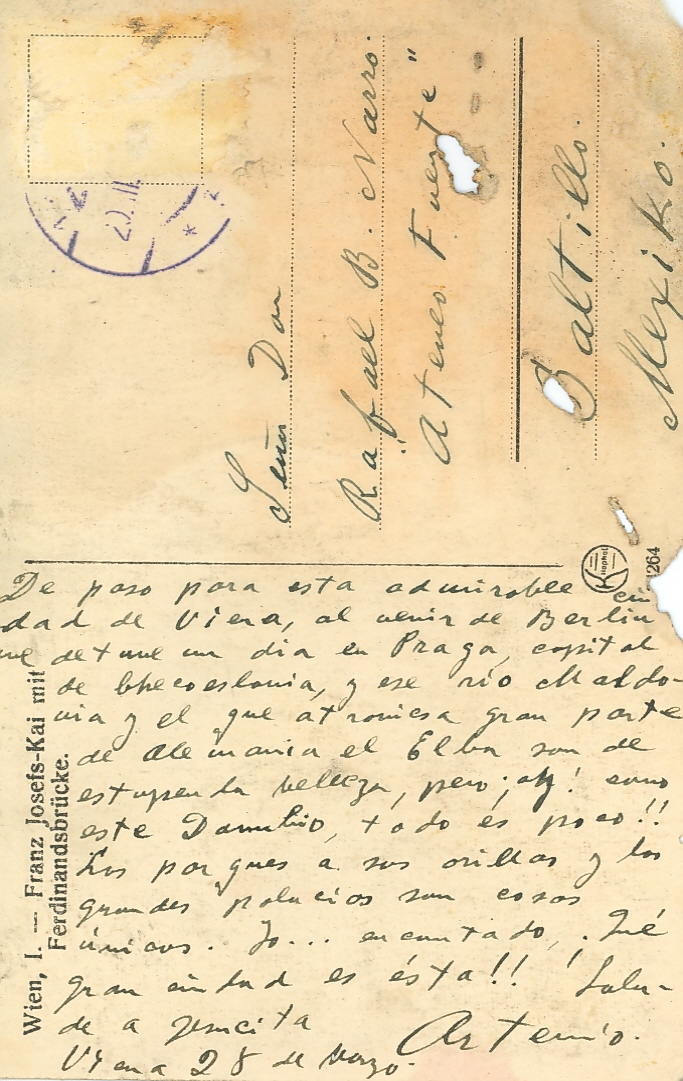 Señor Don
Rafael B. Narro.
Ateneo Fuente"
Saltillo.
Mexiko.
Kilophot
1264
Wien, I. — Franz Josefs-Kai mit
Ferdinandsbrücke.
De paso para esta admirable ciu
dad de Viena, al venir de Berlin
me detuve un dia en Praga, capital
de Checoeslovia, y ese río Moldo-
via y el que atraviesa gran parte
de Alemania el Elba son de
estupenda belleza, pero ¡ah! como
este Danubio, todo es poco!!
Los parques a sus orillas y los
grandes palacios son cosas
únicas. Yo... encantado, ¡Qué
gran ciudad es ésta!! Salu-
de a
Artemio.
Viena 28 de Marzo.